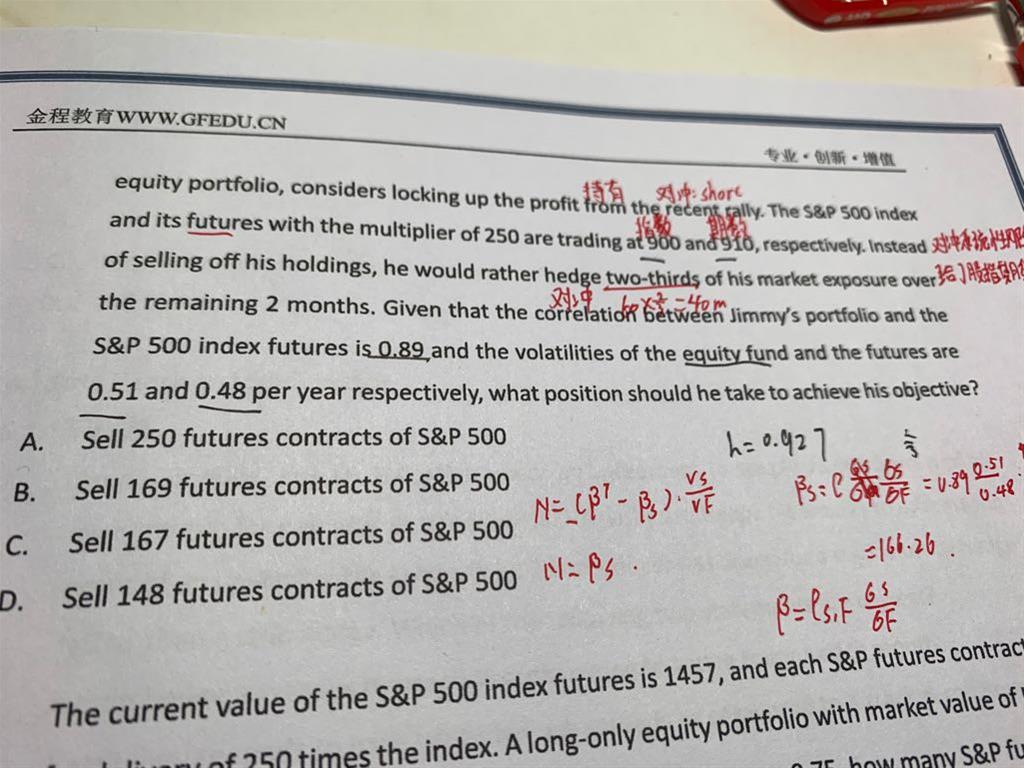 金程教育WWW.GFEDU.CN
专业·创新·增值
持有 对冲: short
equity portfolio, considers locking up the profit from the recent rally. The S&P 500 index
指数 期数
and its futures with the multiplier of 250 are trading at 900 and 910, respectively. Instead
of selling off his holdings, he would rather hedge two-thirds of his market exposure over
对冲 60×⅔=40m
the remaining 2 months. Given that the correlation between Jimmy's portfolio and the
S&P 500 index futures is 0.89 and the volatilities of the equity fund and the futures are
0.51 and 0.48 per year respectively, what position should he take to achieve his objective?
A. Sell 250 futures contracts of S&P 500
h=0.927
B. Sell 169 futures contracts of S&P 500
C. Sell 167 futures contracts of S&P 500
=166.26.
D. Sell 148 futures contracts of S&P 500
N=βs.
The current value of the S&P 500 index futures is 1457, and each S&P futures contract
of 250 times the index. A long-only equity portfolio with market value of
how many S&P fu